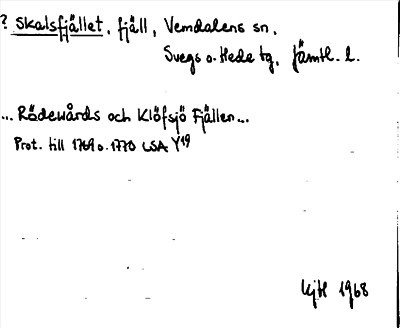 ? Skalsfjället, fjäll, Vemdalens sn,
Svegs o. Hede tg, Jämtl. l.
... Rödewårds och Klöfsjö Fjällen...
Prot. till 1769 o. 1770 LSA Y19
1968